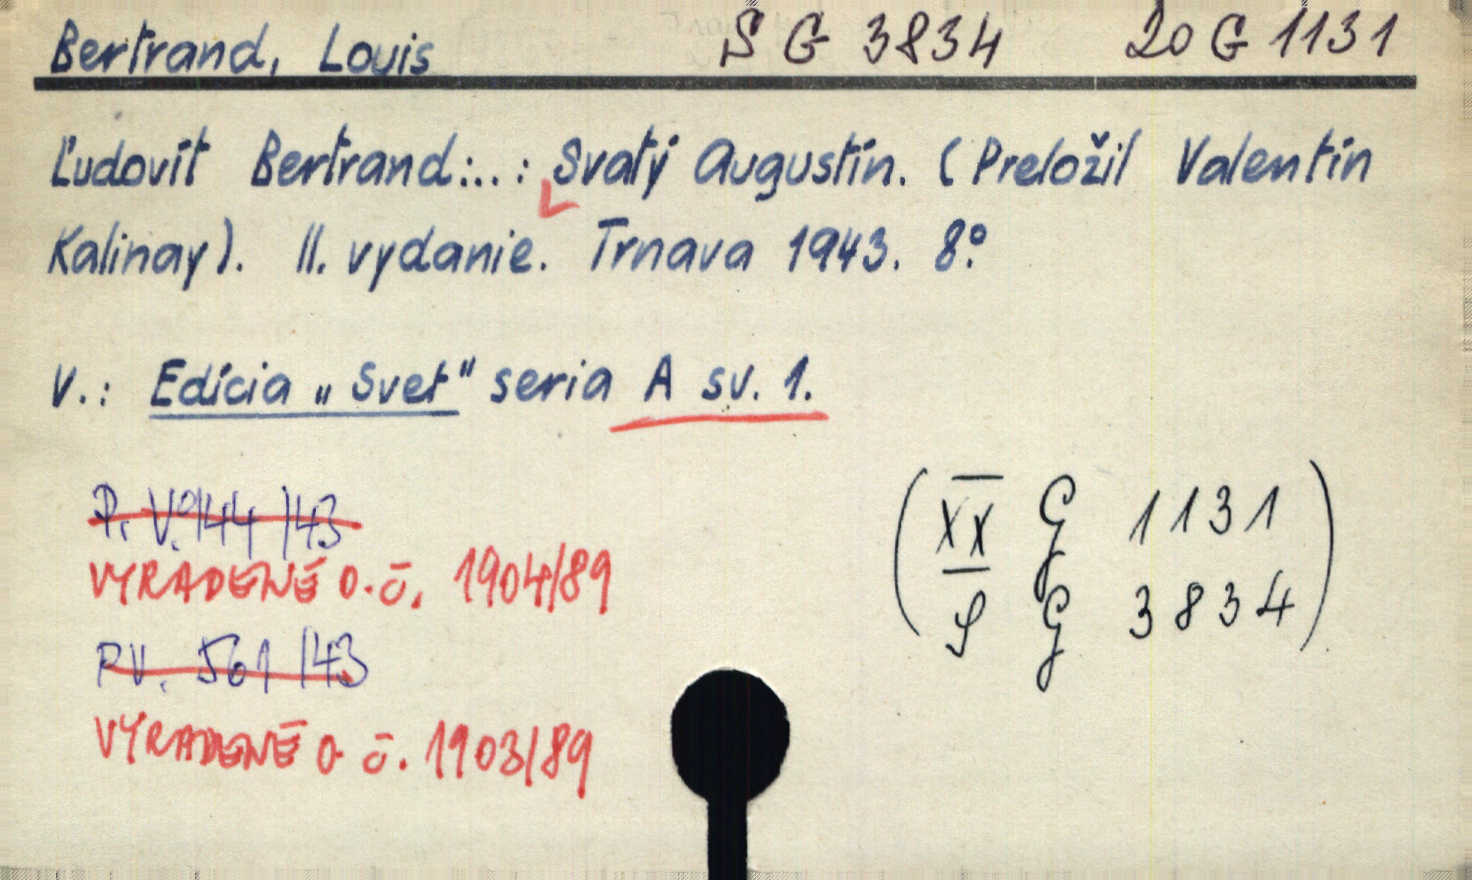 Bertrand, Louis S G 3834 20 G 1131
Ľudovít Bertrand:..: Svatý Augustín. (Preložil Valentín
Kalinay). II. vydanie. Trnava 1943. 8°.
V.: Edícia „Svet" seria A sv. 1.
P. V. 944 /43
VYRADENÉ o.č. 1904/89
PV. 561 /43
VYRADENÉ o č. 1903/89
(XX G 1131
S G 3834)